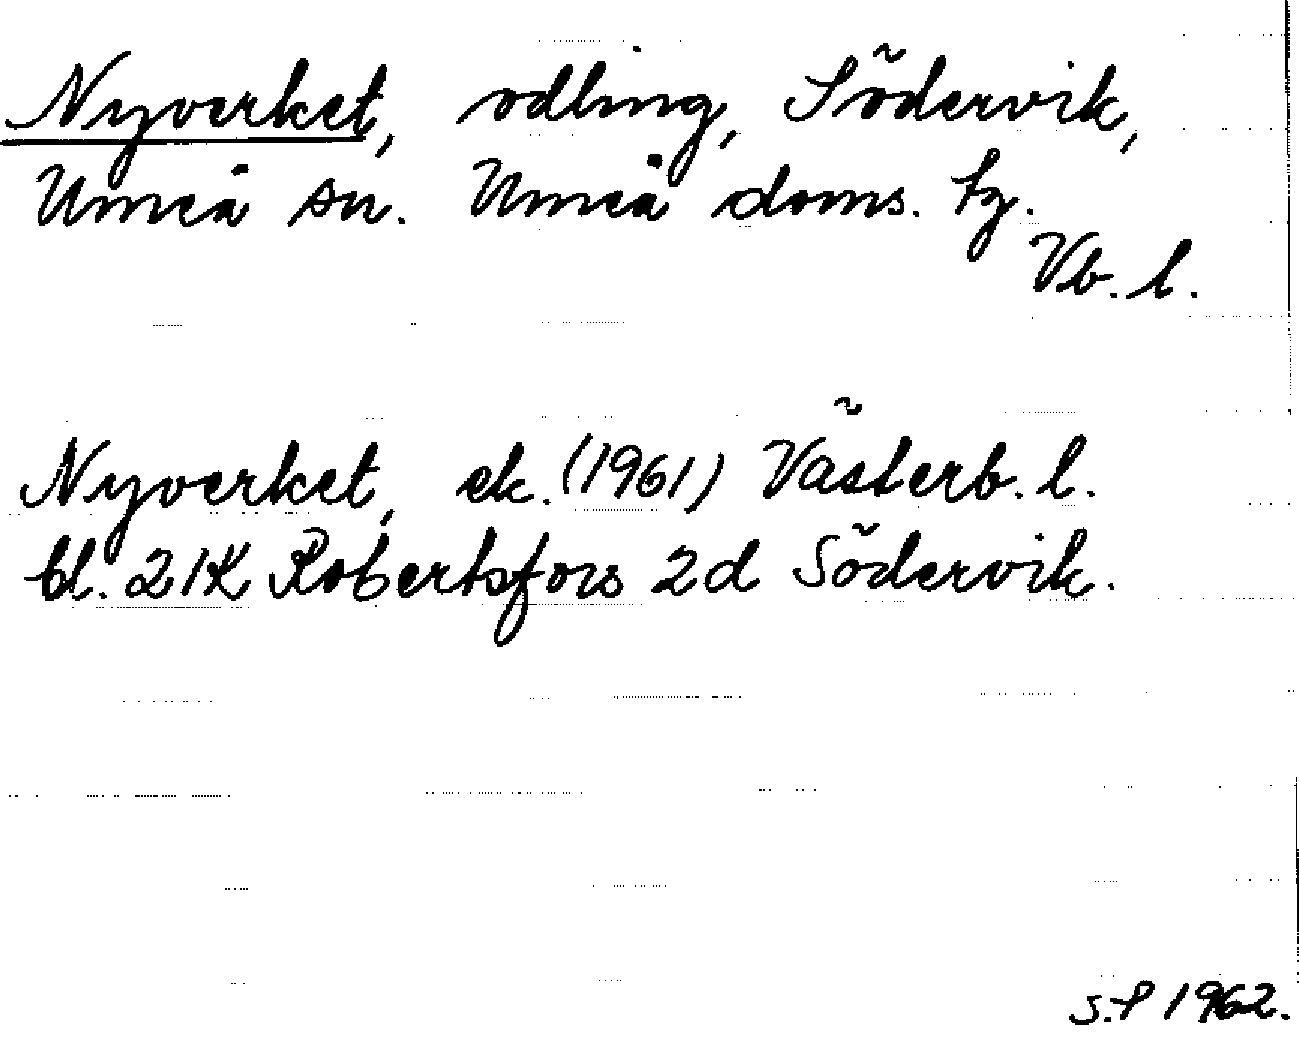 Nyverket, odling, Södervik,
Umeå sn. Umeå doms. tg.
Vb. l.
Nyverket, ek. (1961) Västerb. l.
bl. 21K Robertsfors 2d Södervik.
S.P 1962.